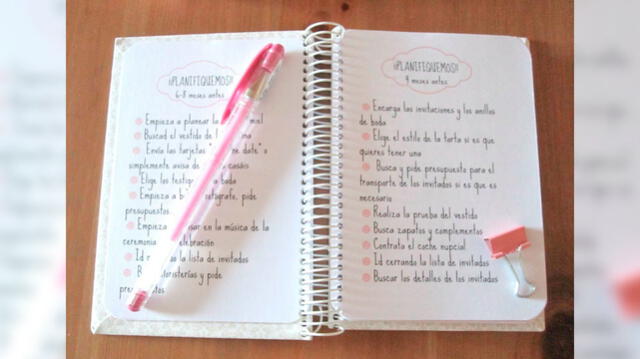 ¡¡PLANIFIQUEMOS!!
6-8 meses antes
Empieza a planear la miel
Buscad el vestido de
Envía las tarjetas date" o
simplemente avisa de casáis
Elige los boda
Empieza a pide
presupuestos.
Empieza en la música de la
ceremonia celebración
Id la lista de invitados
y pide
¡¡PLANIFIQUEMOS!!
9 meses antes
Encarga las invitaciones y los anillos
de boda
Elige el estilo de la tarta si es que
quieres tener una
Busca y pide presupuesto para el
transporte de los invitados si es que es
necesario
Realiza la prueba del vestido
Busca zapatos y complementos
Contrata el coche nupcial
Id cerrando la lista de invitados
Buscar los detalles de los invitados